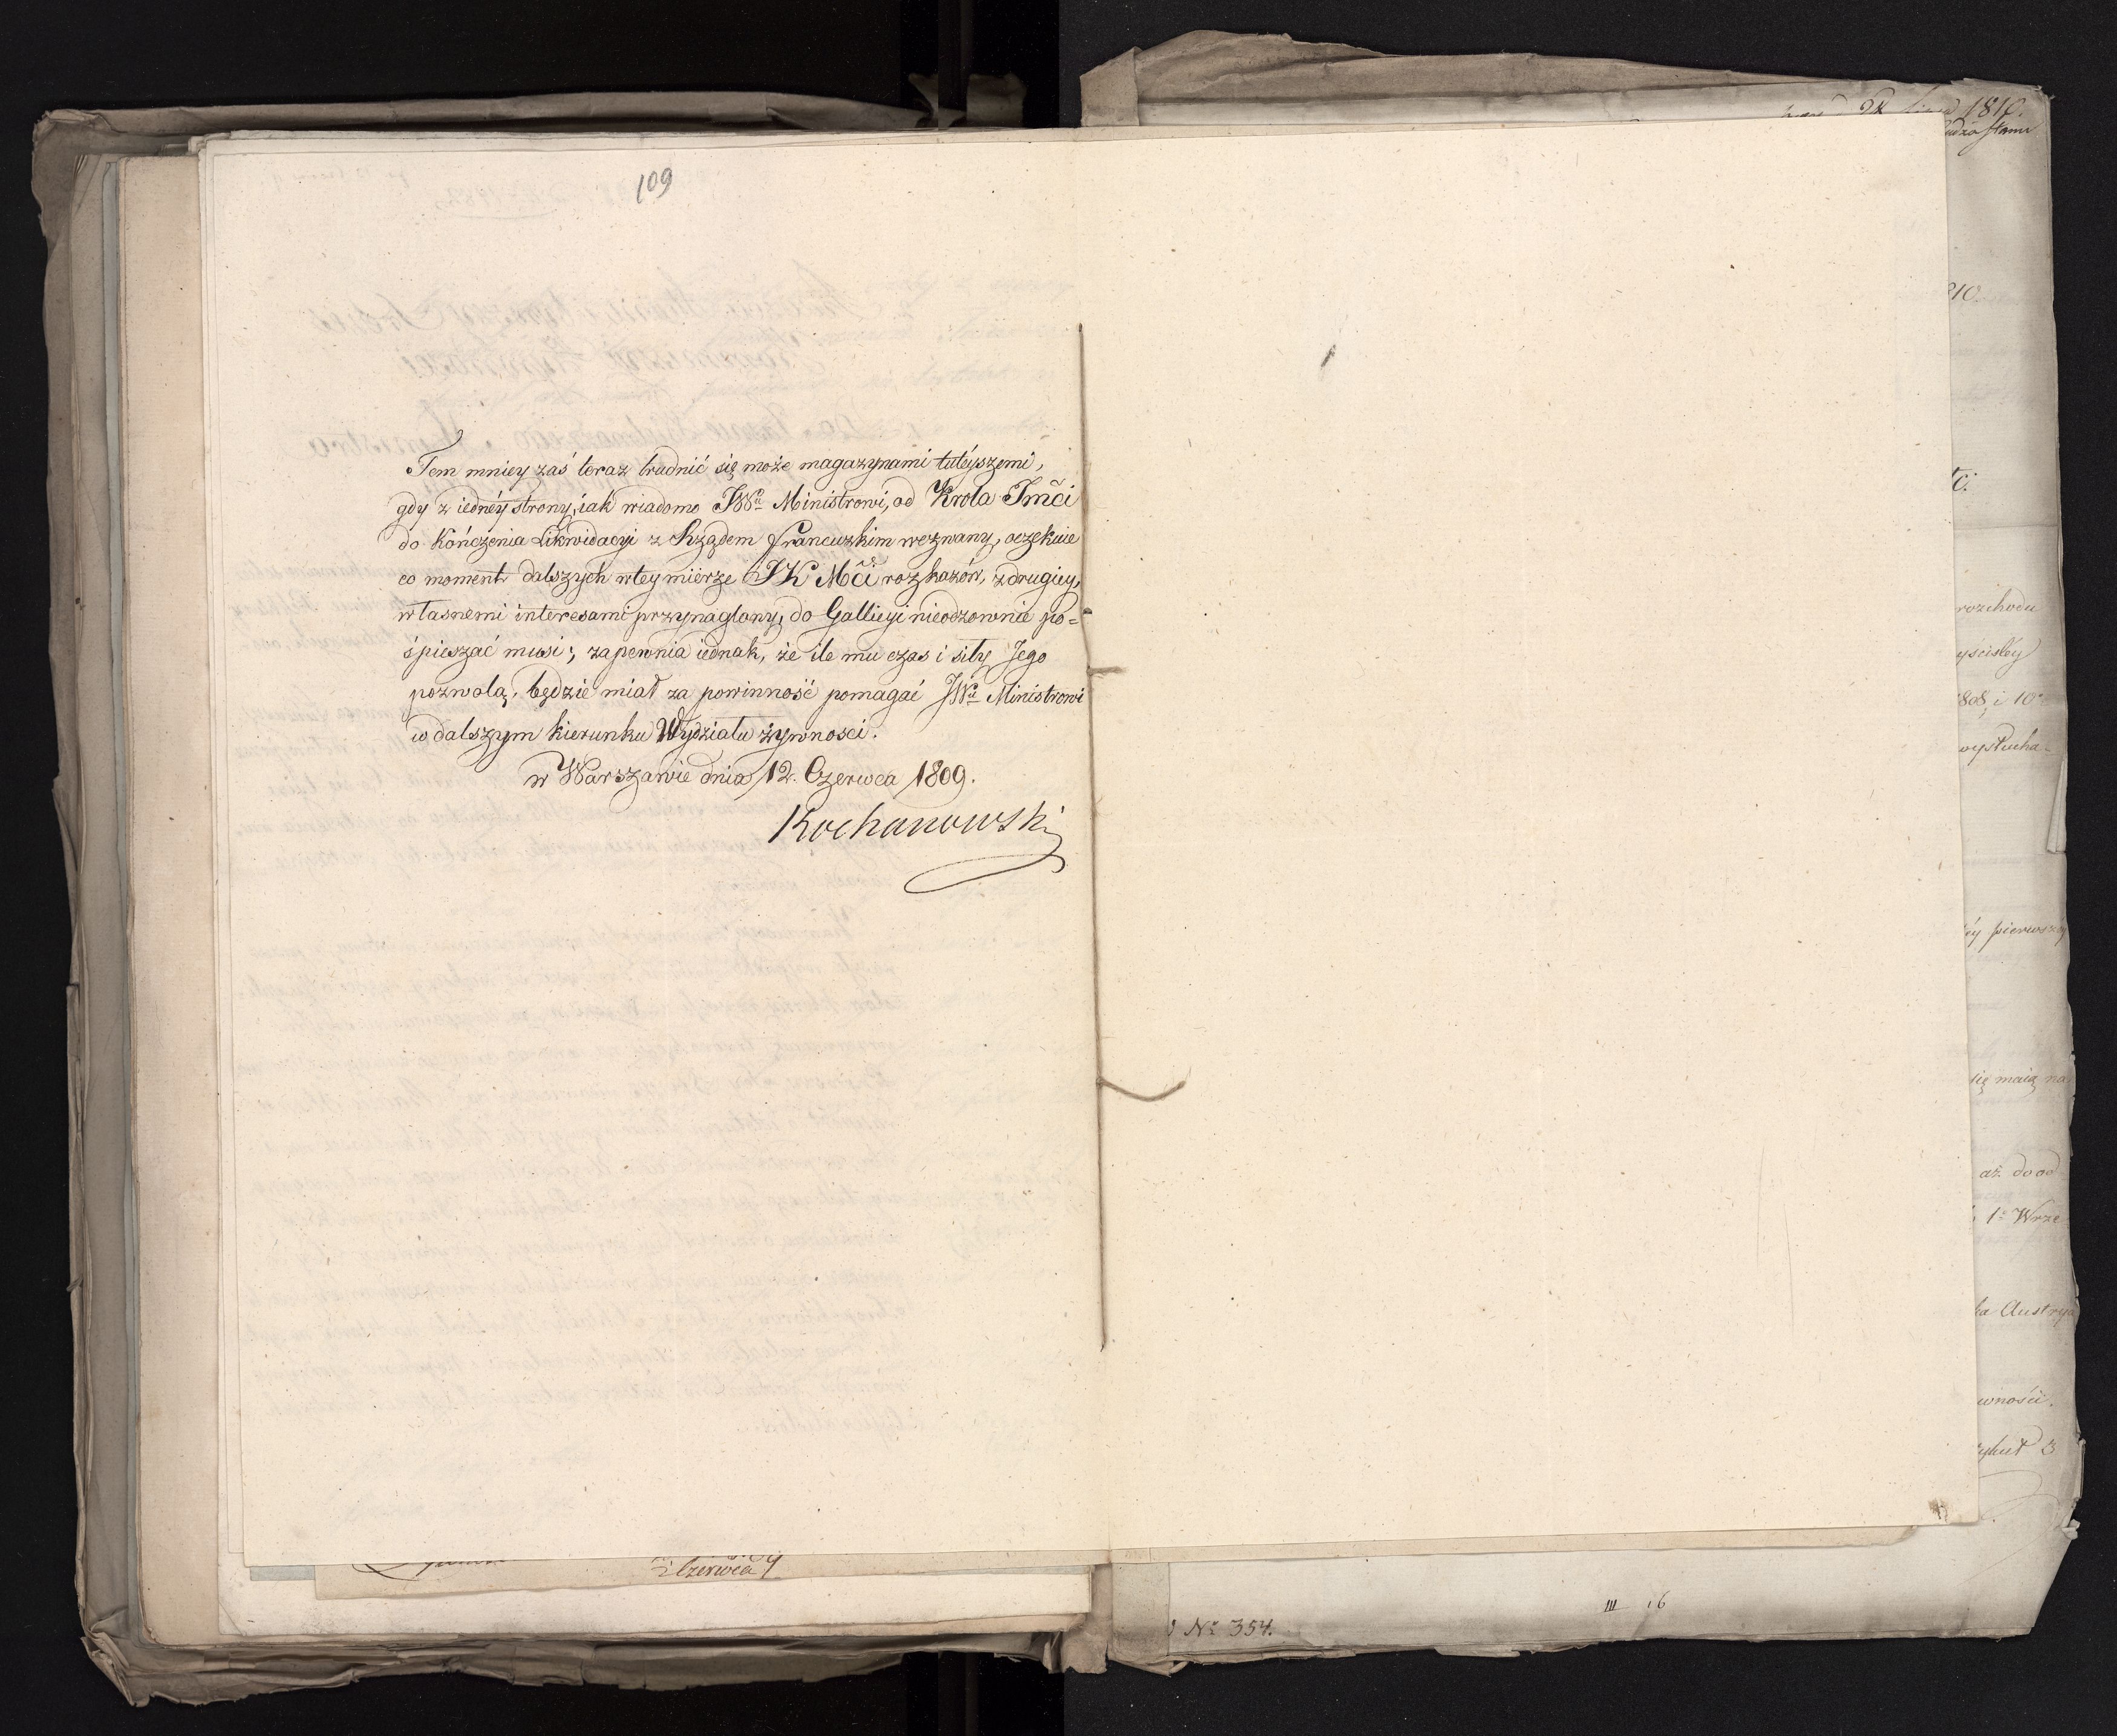 109
Tem mniey zaś teraz trudnić się może magazynami tutéyszemi,
gdy z iednéy strony, iak wiadomo JWu Ministrowi, od Krola Jmći
do kończenia Likwidacyi z Rządem francuzkim wezwany, oczekuie
co moment dalszych w tey mierze JK Mći rozkazów, z drugiey,
własnemi interesami przynaglony, do Gallicyi nieodzownie po=
śpieszać musi; zapewnia iednak, że ile mu czas i siły Jego
pozwolą, będzie miał za powinność pomagać JWu Ministrowi
w dalszym kierunku Wydziału żywnosci.
w Warszawie dnia 12. Czerwca 1809.
Kochanowski
Czerwca
No 354.
III 16
1810.
810.
rozchodu
1808, i 10
wysłucha-
pierwszey
się maią na
aż do od
1o Wrze
Austrya
wności.
3